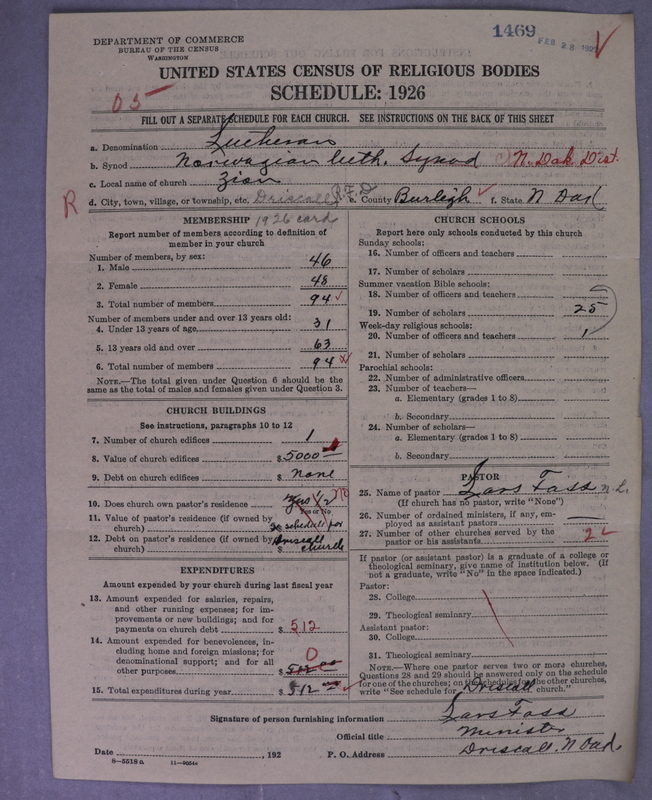 1469 FEB 28 192
DEPARTMENT OF COMMERCE
BUREAU OF THE CENSUS
WASHINGTON
UNITED STATES CENSUS OF RELIGIOUS BODIES
SCHEDULE: 1926
05
FILL OUT A SEPARATE SCHEDULE FOR EACH CHURCH. SEE INSTRUCTIONS ON THE BACK OF THIS SHEET
a. Denomination Lutheran
b. Synod Norwegian Luth. Synod N. Dak. Dist.
c. Local name of church Zion
R d. City, town, village, or township, etc. Driscall R.F.D. e. County Burleigh f. State N Dak
MEMBERSHIP 1926 card
Report number of members according to definition of
member in your church
Number of members, by sex:
1. Male 46
2. Female 48
3. Total number of members 94
Number of members under and over 13 years old:
4. Under 13 years of age 31
5. 13 years old and over 63
6. Total number of members 94
NOTE.—The total given under Question 6 should be the
same as the total of males and females given under Question 3.
CHURCH BUILDINGS
See instructions, paragraphs 10 to 12
7. Number of church edifices 1
8. Value of church edifices $ 5000
9. Debt on church edifices $ none
10. Does church own pastor's residence? yes 1/2 no
Yes or No
11. Value of pastor's residence (if owned by
church) $ schedule for
12. Debt on pastor's residence (if owned by
church) $ Driscall church
EXPENDITURES
Amount expended by your church during last fiscal year
13. Amount expended for salaries, repairs,
and other running expenses; for im-
provements or new buildings; and for
payments on church debt $ 512
14. Amount expended for benevolences, in-
cluding home and foreign missions; for
denominational support; and for all
other purposes $ 0 512
15. Total expenditures during year $ 512
CHURCH SCHOOLS
Report here only schools conducted by this church
Sunday schools:
16. Number of officers and teachers
17. Number of scholars
Summer vacation Bible schools:
18. Number of officers and teachers
19. Number of scholars 25
Week-day religious schools:
20. Number of officers and teachers 1
21. Number of scholars
Parochial schools:
22. Number of administrative officers
23. Number of teachers—
a. Elementary (grades 1 to 8)
b. Secondary
24. Number of scholars—
a. Elementary (grades 1 to 8)
b. Secondary
PASTOR
25. Name of pastor Lars Fass n.L.
(If church has no pastor, write "None")
26. Number of ordained ministers, if any, em-
ployed as assistant pastors —
27. Number of other churches served by the
pastor or his assistants 2
If pastor (or assistant pastor) is a graduate of a college or
theological seminary, give name of institution below. (If
not a graduate, write "No" in the space indicated.)
Pastor:
28. College
29. Theological seminary
Assistant pastor:
30. College
31. Theological seminary
NOTE.—Where one pastor serves two or more churches,
Questions 28 and 29 should be answered only on the schedule
for one of the churches; on the schedules for the other churches,
write "See schedule for Driscall church."
Signature of person furnishing information Lars Fass
Official title Minister
Date , 192 P. O. Address Driscall, N Dak.
8—5518 a